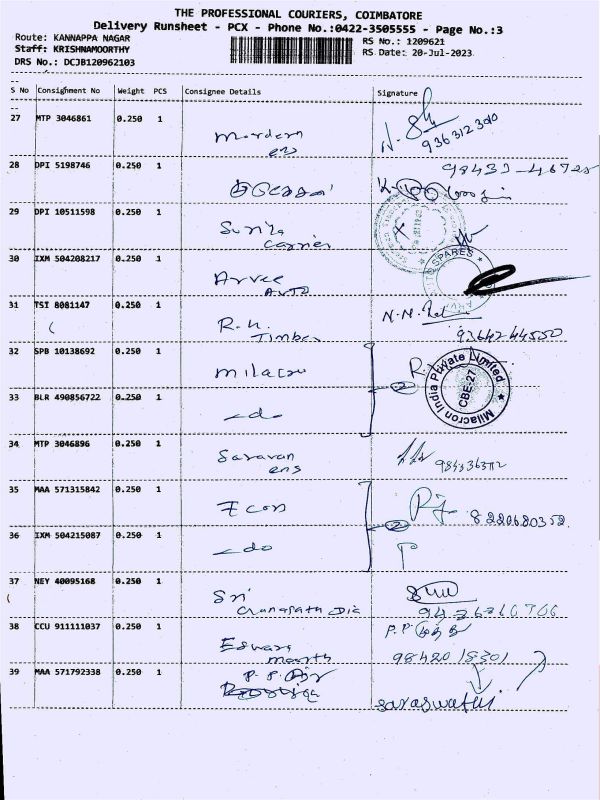 THE PROFESSIONAL COURIERS, COIMBATORE
Delivery Runsheet - PCX - Phone No.:0422-3505555 - Page No.:3
Route: KANNAPPA NAGAR RS No.: 1209621
Staff: KRISHNAMOORTHY RS Date: 20-Jul-2023
DRS No.: DCJB120962103
S No Consignment No Weight PCS Consignee Details Signature
27 MTP 3046861 0.250 1
Mordern
en
28 DPI 5198746 0.250 1
29 DPI 10511598 0.250 1
Carrier
30 IXM 504208217 0.250 1 SPARES
Arvee
Auto
31 TSI 8081147 0.250 1
R.K.
Timber 9364244550
32 SPB 10138692 0.250 1
Milacron India Private Limited
CBE-27
33 BLR 490856722 0.250 1
do
34 MTP 3046896 0.250 1
Saravan
ens
35 MAA 571315842 0.250 1
Econ 8220680352
36 IXM 504215087 0.250 1
do
37 NEY 40095168 0.250 1
Sri
38 CCU 911111037 0.250 1 P.P.
9842018301
39 MAA 571792338 0.250 1
Saraswathi